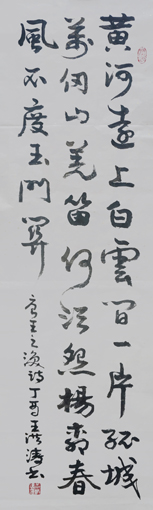 黄河遠上白雲間一片孤城
萬仞山羌笛何須怨楊柳春
風不度玉門關
唐王之渙詩丁酉王洪涛书